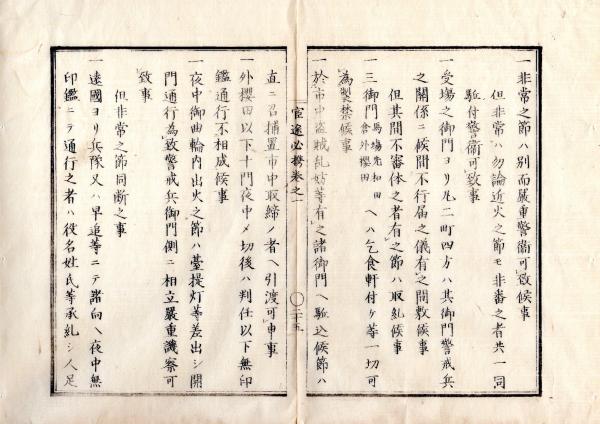 一非常之節ハ別而嚴重警衞可致候事
但非常ハ勿論近火之節モ非番之者共一同
駈付警衞可致事
一受場之御門ヨリ凡二町四方ハ其御門警戒兵
之關係ニ候間不行届之儀有之間敷候事
但其間不審体之者有之節ハ取糺候事
一三御門 馬場先 和田倉 外櫻田 ヘハ乞食軒付ケ等一切可
為製禁候事
一於市中盗賊乱妨等有之諸御門ヘ駈込候節ハ
宦途必携巻之一
〇二十五
直ニ召捕置市中取締ノ者ヘ引渡可申事
一外櫻田以下十門夜中〆切後ハ判任以下無印
鑑通行不相成候事
一夜中御曲輪内出火之節ハ臺提灯等差出シ開
門通行為致警戒兵御門側ニ相立嚴重譏察可
致事
但非常之節同断之事
一遠國ヨリ兵隊又ハ早追等ニテ諸向ヘ夜中無
印鑑ニテ通行之者ハ役名姓氏等承糺シ人足